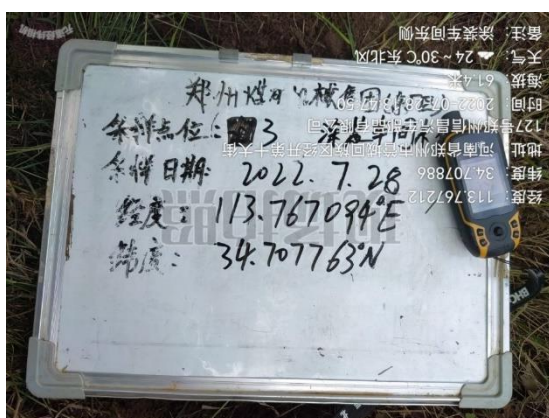 郑州煤矿机械集团
采样点位: 3 涂装车间
采样日期: 2022.7.28
经度: 113.767094°E
纬度: 34.707763°N
经度: 113.767212
纬度: 34.707886
地址: 河南省郑州市管城回族区经开第十大街
127号郑州信昌汽车部品有限公司
时间: 2022-07-28 13:47:50
海拔: 61.4米
天气: 24~30℃ 东北风
备注: 涂装车间东侧